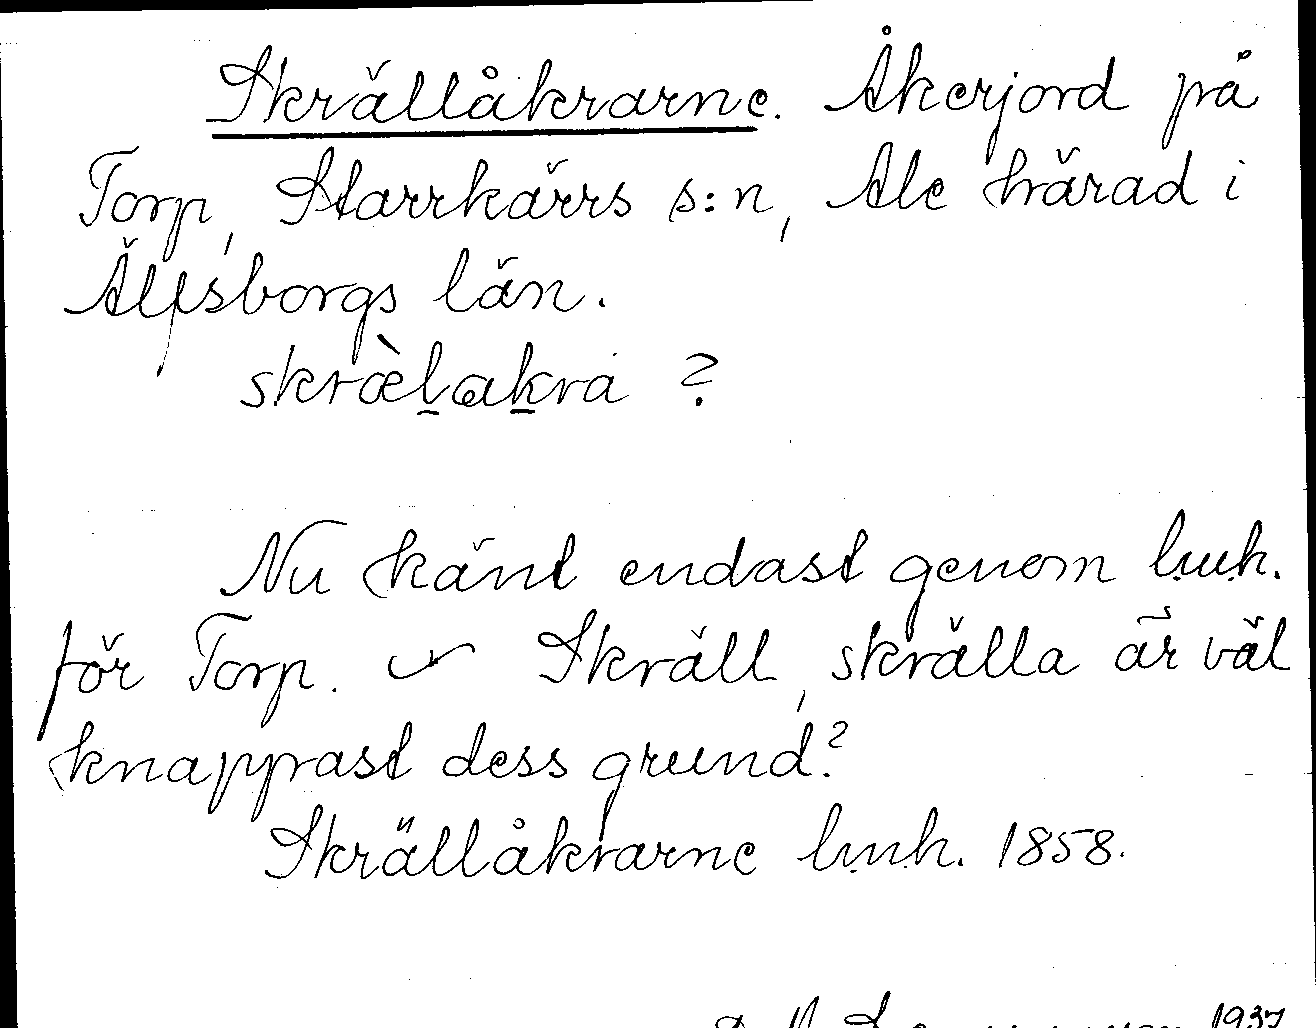 Skrällåkrarne. Åkerjord på
Torp, Starrkärrs s:n, Ale härad i
Älfsborgs län.
skræ̀lakra ?
Nu känt endast genom l.m.h.
för Torp. Skräll, skrälla är väl
knappast dess grund?
Skrällåkrarne l.m.h. 1858.
1937